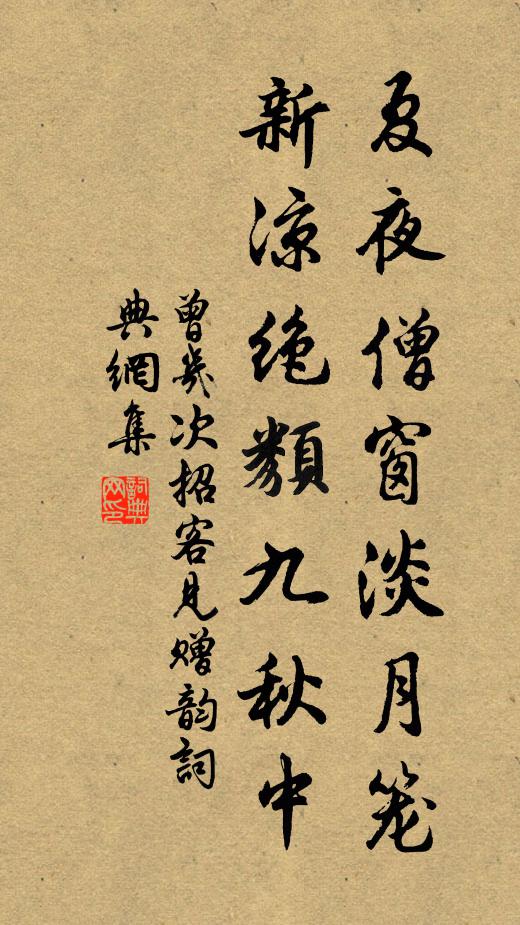 夏夜僧窗淡月笼
新凉绝类九秋中
曾几次招客见赠韵詞
典網集
詞典网印